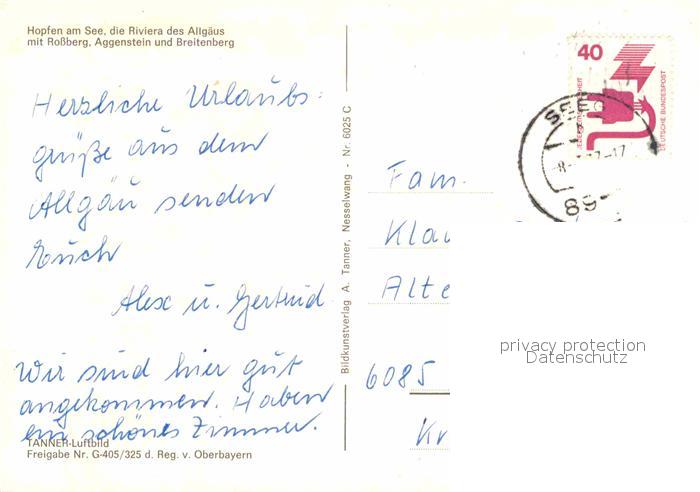 Hopfen am See, die Riviera des Allgäus
mit Roßberg, Aggenstein und Breitenberg
Herzliche Urlaubs-
grüße aus dem
Allgäu senden
Euch
Alex u. Gertrud
Wir sind hier gut
angekommen. Haben
ein schönes Zimmer.
TANNER-Luftbild
Freigabe Nr. G-405/325 d. Reg. v. Oberbayern
Bildkunstverlag A. Tanner, Nesselwang - Nr. 6025 C
40
DEUTSCHE BUNDESPOST
SEEG
89
Fam.
Klau
Alte
6085
Kr
privacy protection
Datenschutz